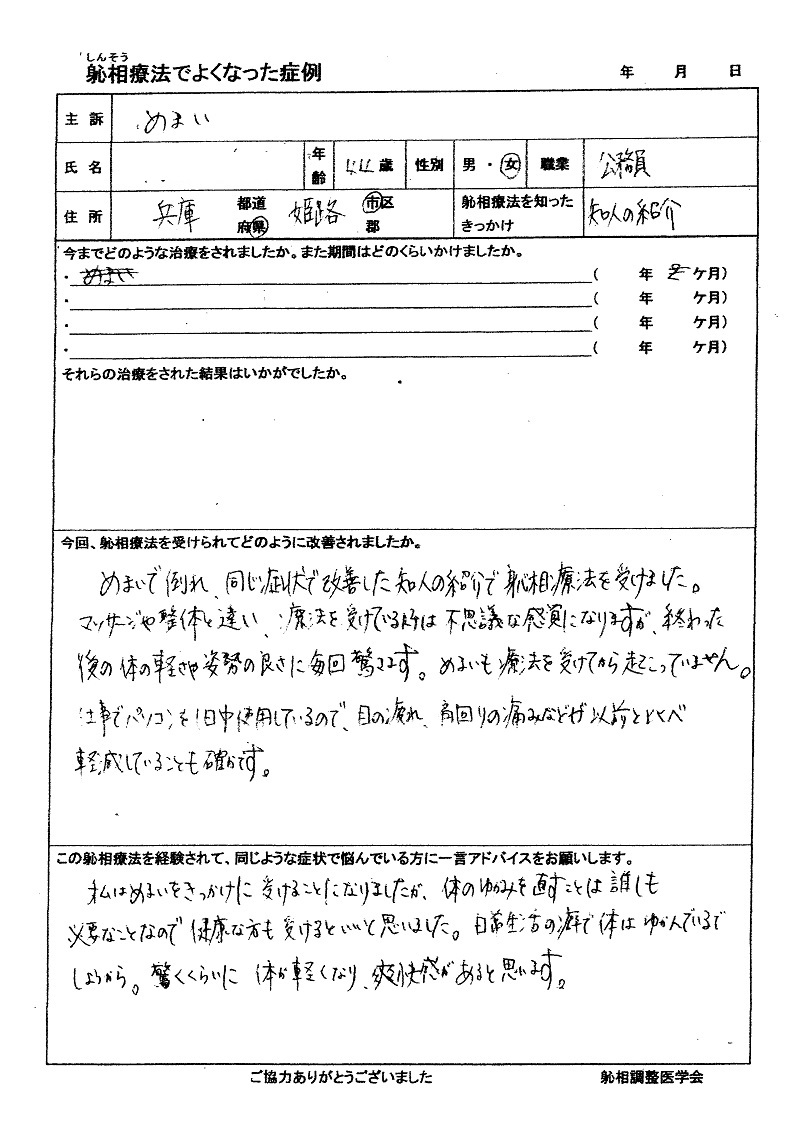 しんそう
躰相療法でよくなった症例
年 月 日
主訴 めまい
氏名 年齢 44歳 性別 男・女 職業 公務員
住所 兵庫 都道府県 姫路 市区郡 躰相療法を知ったきっかけ 知人の紹介
今までどのような治療をされましたか。また期間はどのくらいかけましたか。
・ ( 年 ケ月)
・ ( 年 ケ月)
・ ( 年 ケ月)
・ ( 年 ケ月)
それらの治療をされた結果はいかがでしたか。
今回、躰相療法を受けられてどのように改善されましたか。
めまいで倒れ、同じ症状で改善した知人の紹介で躰相療法を受けました。
マッサージや整体と違い、療法を受けている時は不思議な感覚になりますが、終わった
後の体の軽さや姿勢の良さに毎回驚きます。めまいも療法を受けてから起こっていません。
仕事でパソコンを1日中使用しているので、目の疲れ、肩回りの痛みなどが以前とくらべ
軽減していることも確かです。
この躰相療法を経験されて、同じような症状で悩んでいる方に一言アドバイスをお願いします。
私はめまいをきっかけに受けることになりましたが、体のゆがみを直すことは誰しも
必要なことなので健康な方も受けるといいと思いました。日常生活の癖で体はゆがんでいるで
しょうから。驚くくらいに体が軽くなり、爽快感があると思います。
ご協力ありがとうございました 躰相調整医学会